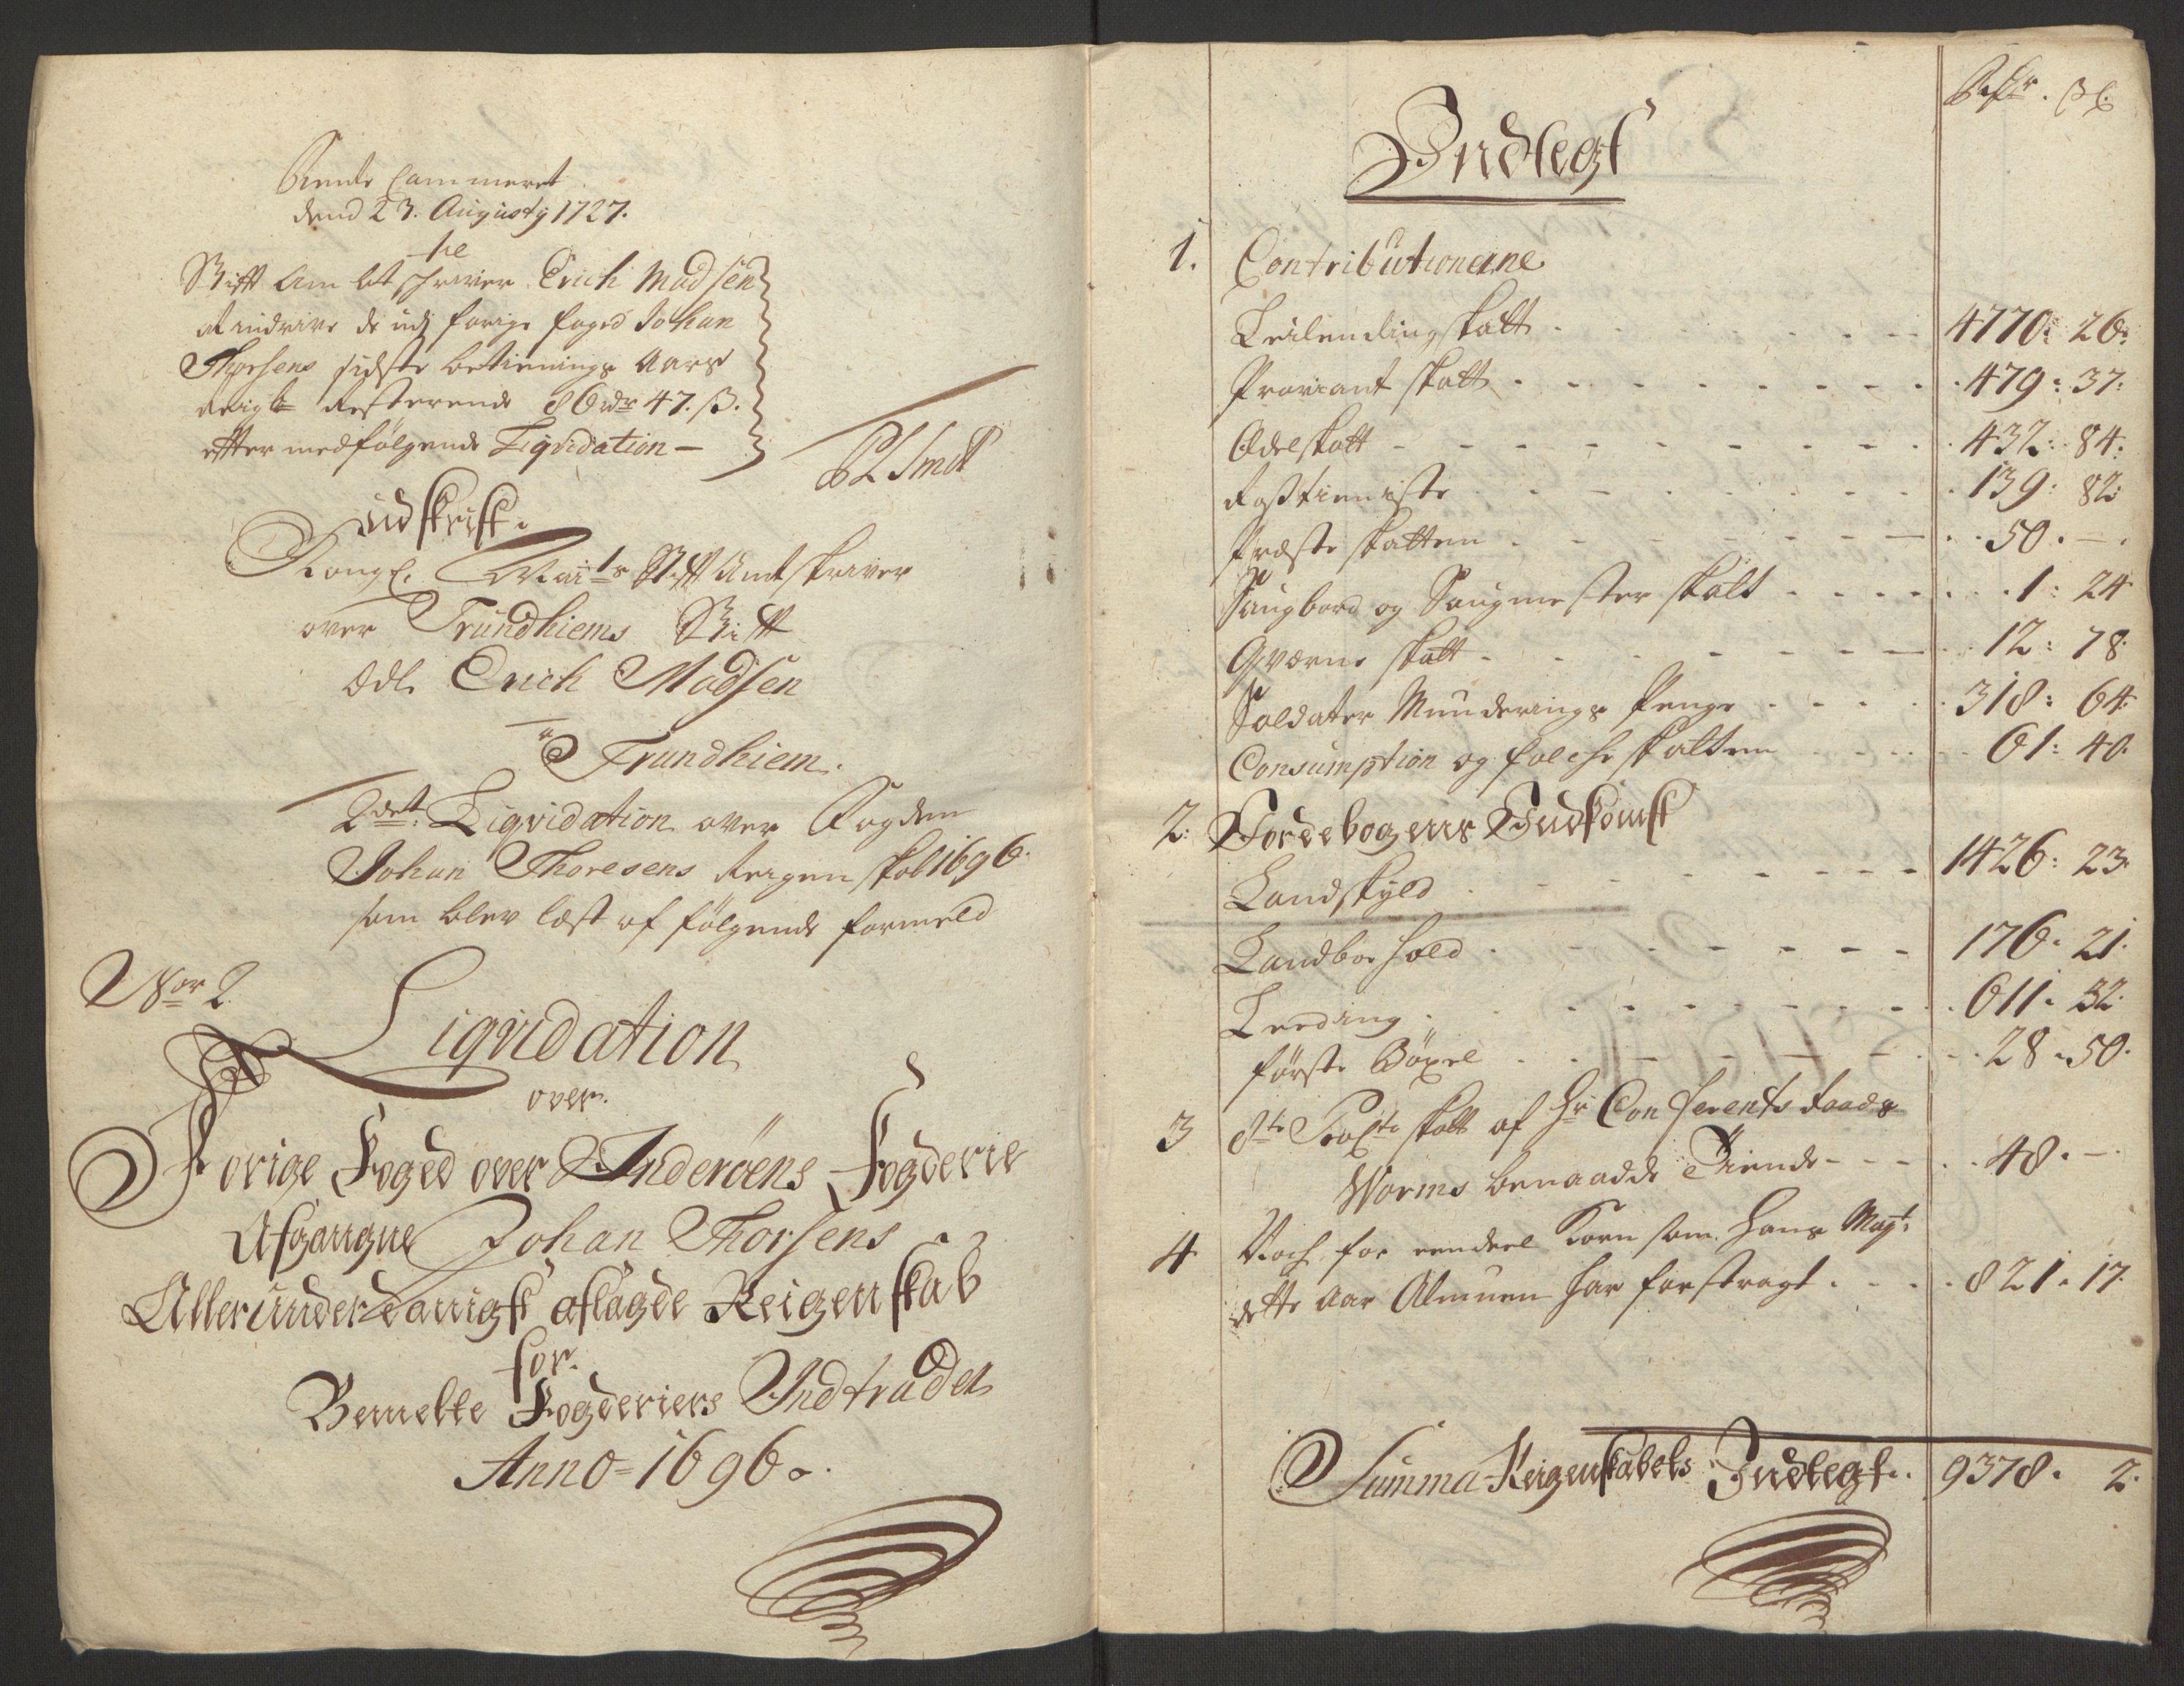 Rente Cammeret
dend 23. Augusty 1727.
Stifft Ambtschriver Erich Madsen
at inddrive de udj forige foged Johan
Thorsens sidste betienings Aars
Reigl. Resterende 86 rdr 47. ß.
efter medfølgende Liqvidation —
Udskrift.
Kongl. May.ts Stifft Amtskriver
over Trundhiems Stifft
Edl. Erich Madsen
a Trundhiem.
2det Liqvidation over Fogden
Johan Thoresens Reigenskab 1696
som blev læst af følgende formeld
Nor 2.
Liqvidation
over
Forige Foged over Inderöens Fogderie
Afgangne Johan Thorsens
Allerunderdanigst aflagde Reigenskab
for.
Bemelte Fogderiers Indtrader
Anno 1696.
Rdr. ß.
Indtegt
1. Contributionerne
Leilendingskatt 4770: 26:
Proviant skatt 479: 37:
Odelskatt 432: 84:
Rostienniste 139: 82:
Præsteskatten 50. —.
Saugbord og Saugmester skatt 1: 24
Qværne skatt 12: 78.
Soldater Munderings Penge 318: 64.
Consumption og folche skatten 61: 40.
2: Jordebogens Indkomst
Landskyld 1426: 23.
Landboehold 176. 21.
Leeding 611. 32.
förste Böxel 28. 50.
3 skatt af Hr. Conferents Raads
Worms benaadde Tiende 48. —.
4. Noch for eendeel Korn som Hans Mayt.
dette Aar Almuen har forstragt 821. 17.
Summa Reigenskabets Indtegt. 9378. 2.